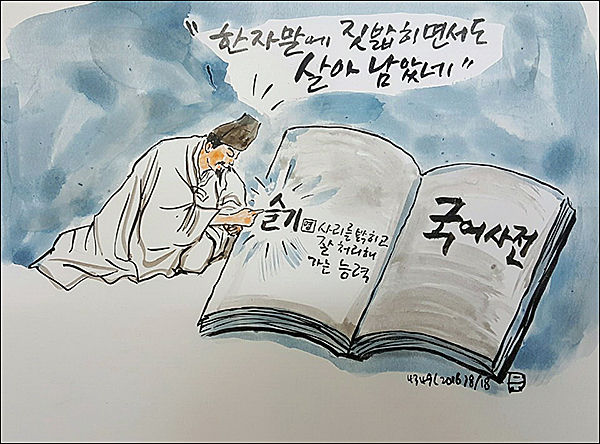 "한자말에 짓밟히면서도
살아 남았네"
슬기 명 사리를 밝히고
잘 처리해
가는 능력
국어사전
4349(2016)8/18